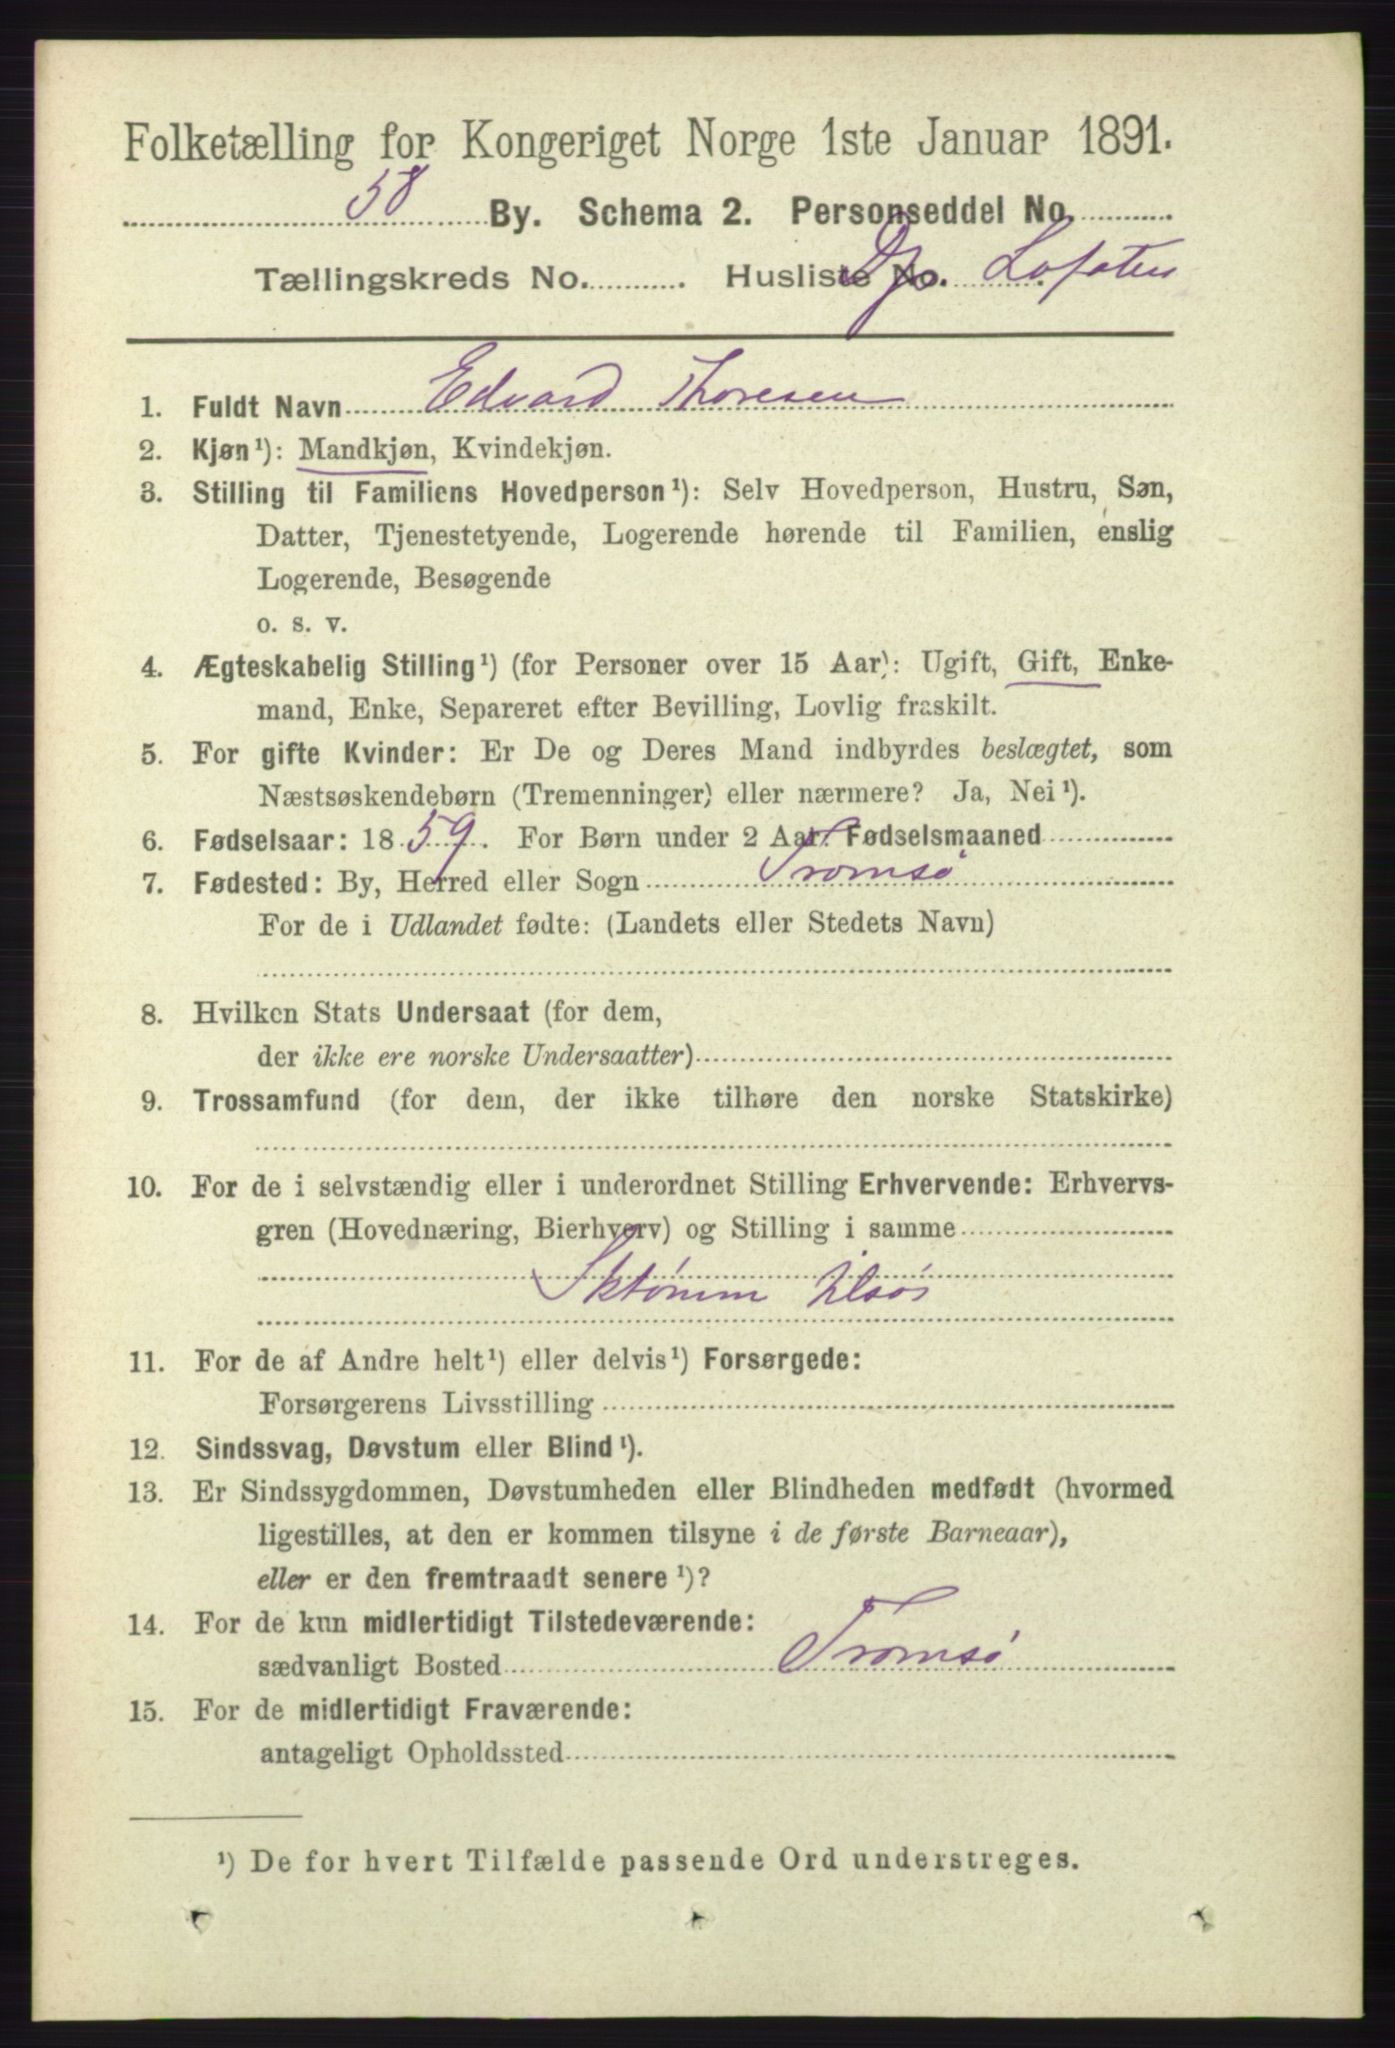 Folketælling for Kongeriget Norge 1ste Januar 1891.
58 By. Schema 2. Personseddel No.
Tællingskreds No. Husliste No. Lofoten
1. Fuldt Navn Edvard Thoresen
2. Kjøn¹): Mandkjøn, Kvindekjøn.
3. Stilling til Familiens Hovedperson¹): Selv Hovedperson, Hustru, Søn,
Datter, Tjenestetyende, Logerende hørende til Familien, enslig
Logerende, Besøgende
o. s. v.
4. Ægteskabelig Stilling¹) (for Personer over 15 Aar): Ugift, Gift, Enke-
mand, Enke, Separeret efter Bevilling, Lovlig fraskilt.
5. For gifte Kvinder: Er De og Deres Mand indbyrdes beslægtet, som
Næstsøskendebørn (Tremenninger) eller nærmere? Ja, Nei¹).
6. Fødselsaar: 1859. For Børn under 2 Aar: Fødselsmaaned
7. Fødested: By, Herred eller Sogn Tromsø
For de i Udlandet fødte: (Landets eller Stedets Navn)
8. Hvilken Stats Undersaat (for dem,
der ikke ere norske Undersaatter)
9. Trossamfund (for dem, der ikke tilhøre den norske Statskirke)
10. For de i selvstændig eller i underordnet Stilling Erhvervende: Erhvervs-
gren (Hovednæring, Bierhverv) og Stilling i samme
tilsøs
11. For de af Andre helt¹) eller delvis¹) Forsørgede:
Forsørgerens Livsstilling
12. Sindssvag, Døvstum eller Blind¹).
13. Er Sindssygdommen, Døvstumheden eller Blindheden medfødt (hvormed
ligestilles, at den er kommen tilsyne i de første Barneaar),
eller er den fremtraadt senere¹)?
14. For de kun midlertidigt Tilstedeværende:
sædvanligt Bosted Tromsø
15. For de midlertidigt Fraværende:
antageligt Opholdssted
¹) De for hvert Tilfælde passende Ord understreges.